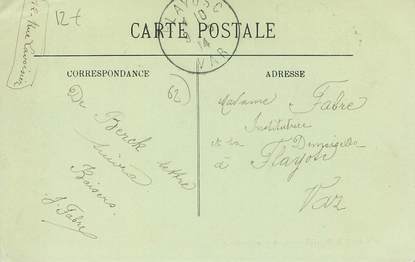 12 €
CARTE POSTALE
FLAYOSC
10
14
VAR
CORRESPONDANCE
ADRESSE
62
De Berck
suivra lettre
Baisers
J. Fabre
Madame Fabre
Institutrice
et sa Demoiselle
à Flayosc
Var